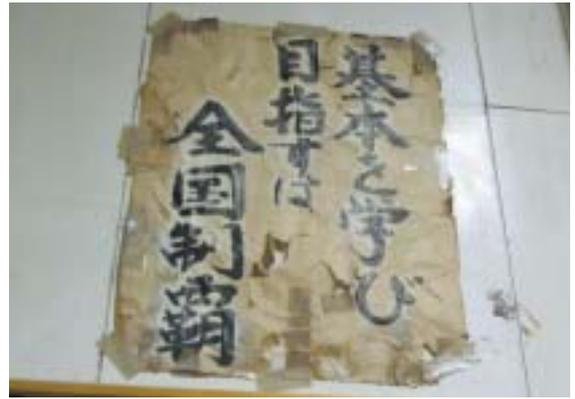 基本を学び
目指すは
全国制覇